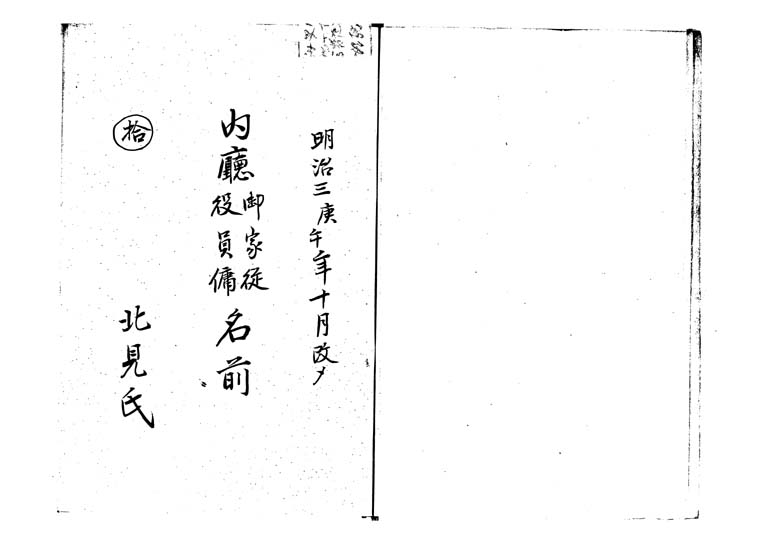 明治三庚午年十月改〆
内廳御家従役員傭名前
拾
北見氏